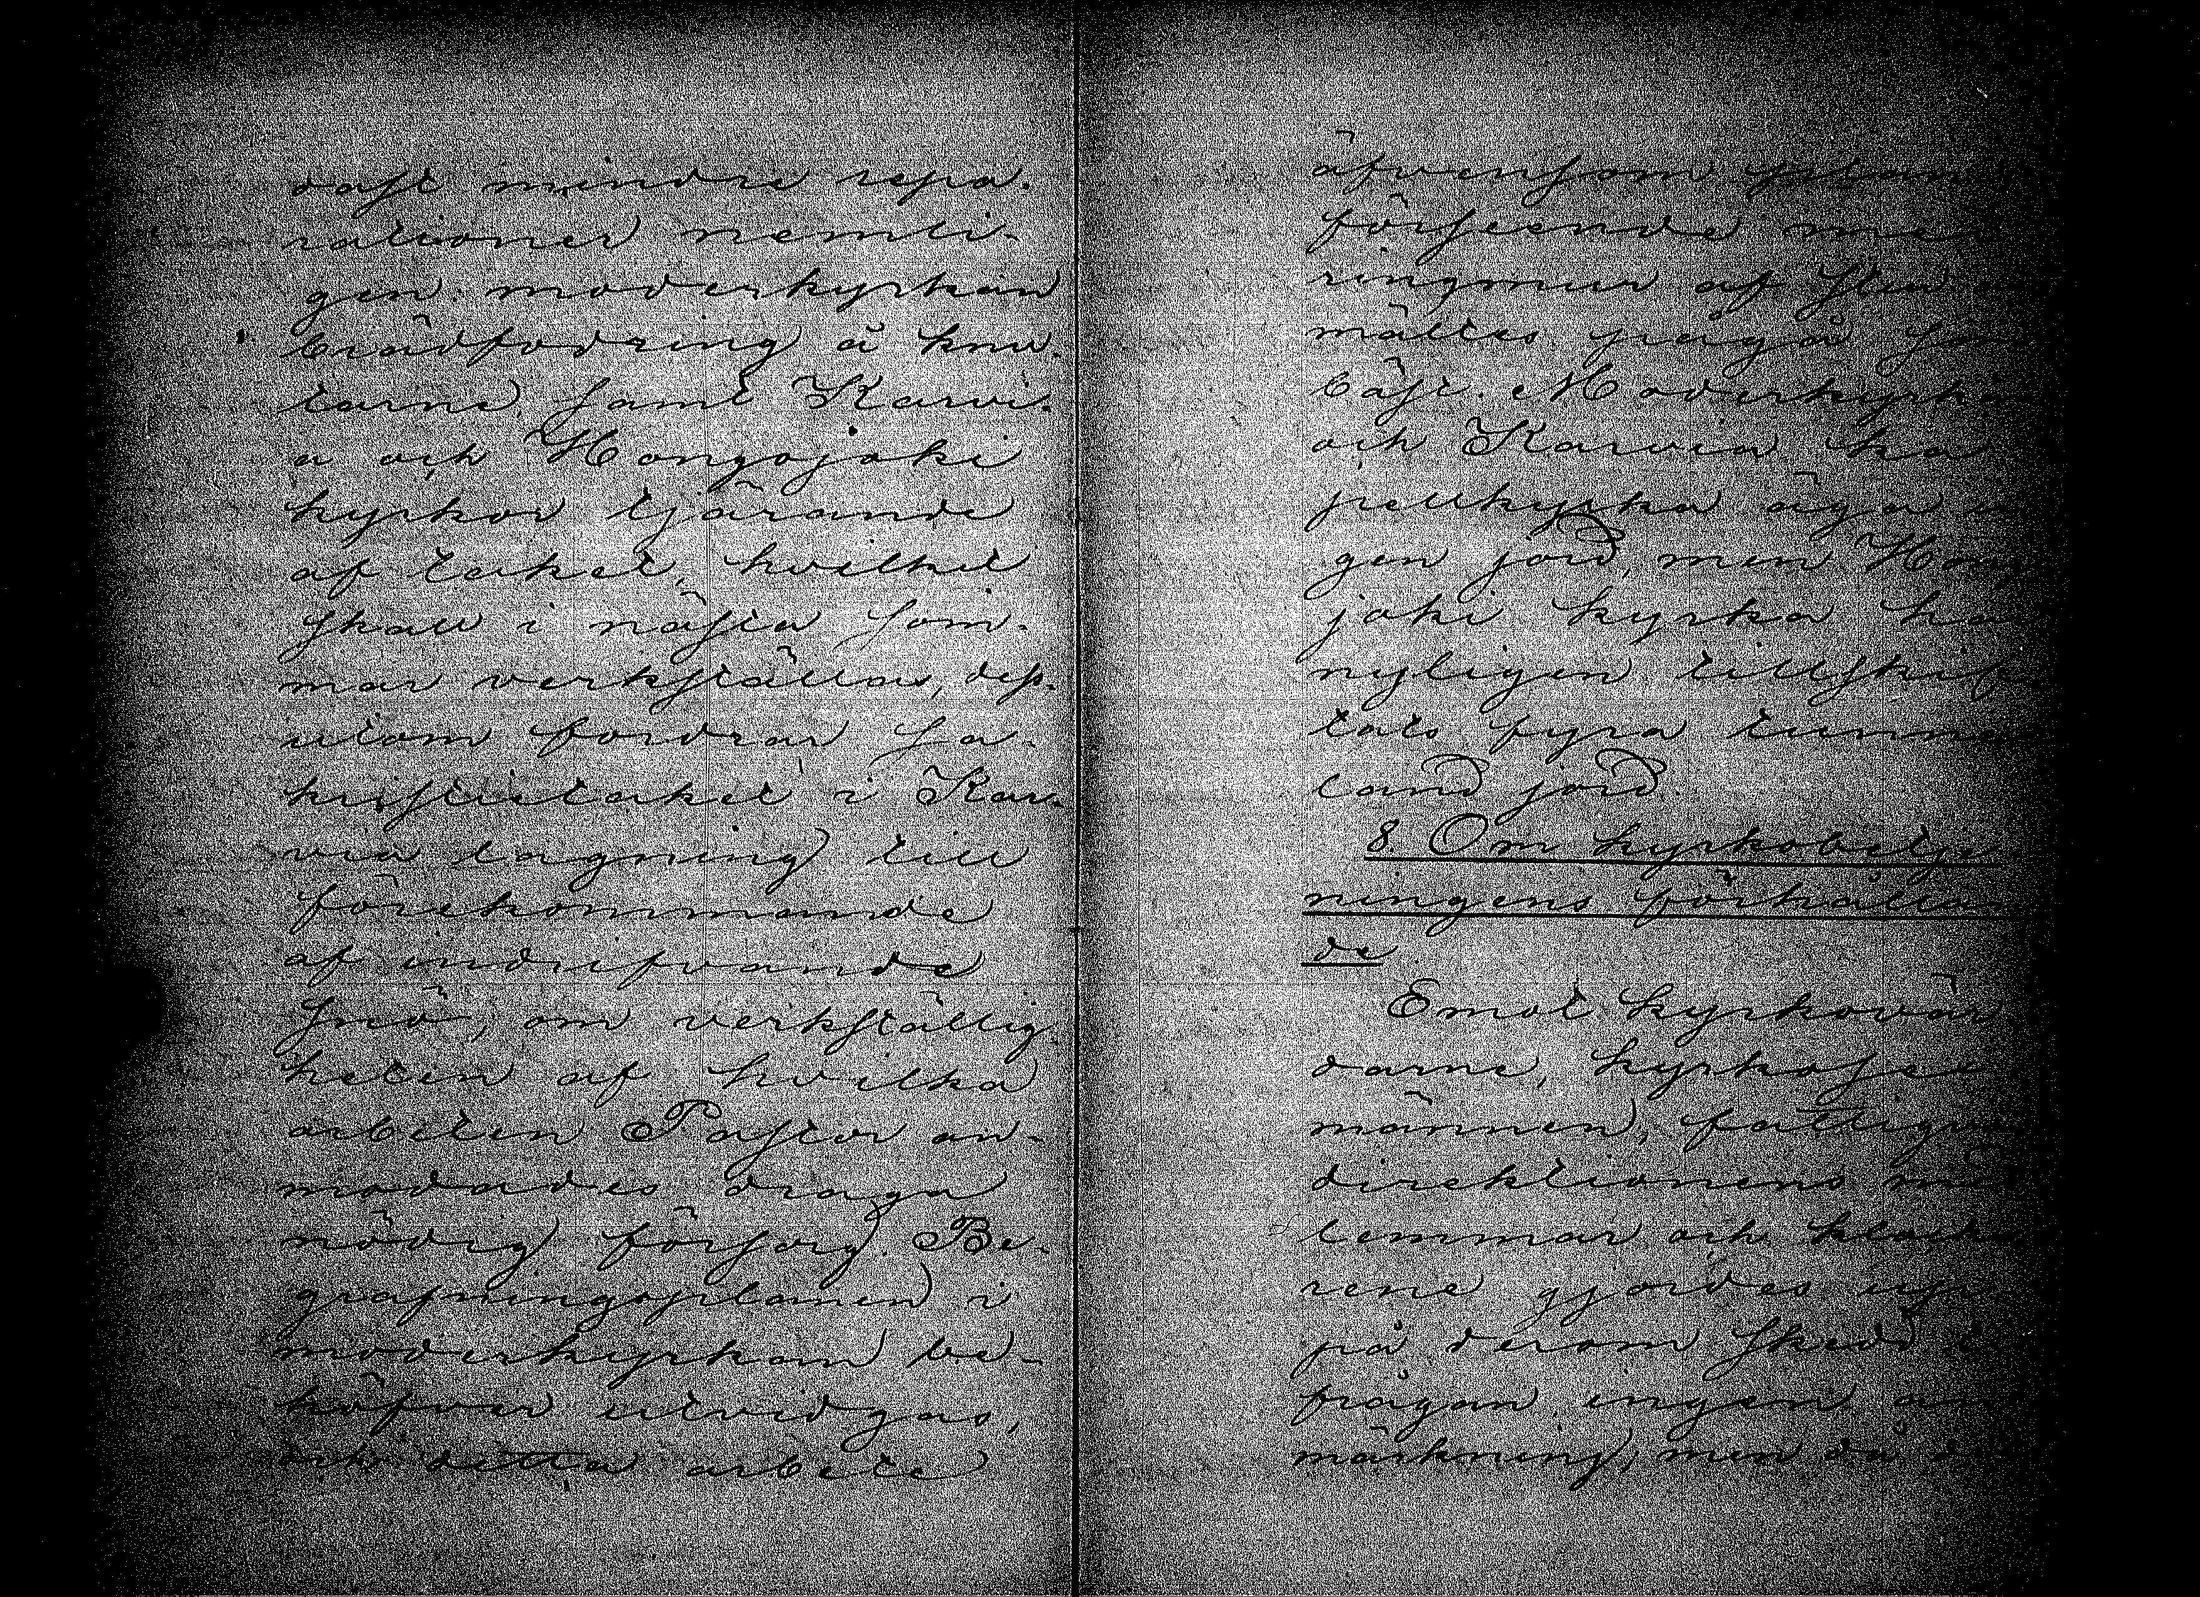 dast mindre repa-
rationer nemli-
gen: moderkyrkan
brädfodring å knu-
tarne, samt Karvi-
a och Hongojoki
kyrkor tjärande
af taket, hvilket
skall i nästa som-
mar verkställas, dess-
utom fordrar Sa-
kristietaket i Kar-
via lagning till
förekommande
af indrifvande
snö, om verkställig-
heten af hvilka
arbeten Pastor an-
modades draga
nödig försorg. Be-
grafningsplanen i
moderkyrkan be-
höfver utvidgas,
och detta arbete
äfvensom
förseende me
ringmur af sten
mältes pågå som
bäst. Moderkyrka
och Karvia ka
pellkyrka äga in
gen jord, men Hong
joki kyrka ha
nyligen tillskif
tats fyra tunne
land jord
8. Om kyrkobetje
ningens förhållan
de.
Emot kyrkovär
darne, kyrkosex
männen, fattigvår
direktionens med
lemmar och klocka
rene gjordes upp
på derom skedd
frågan ingen an
märkning, men då